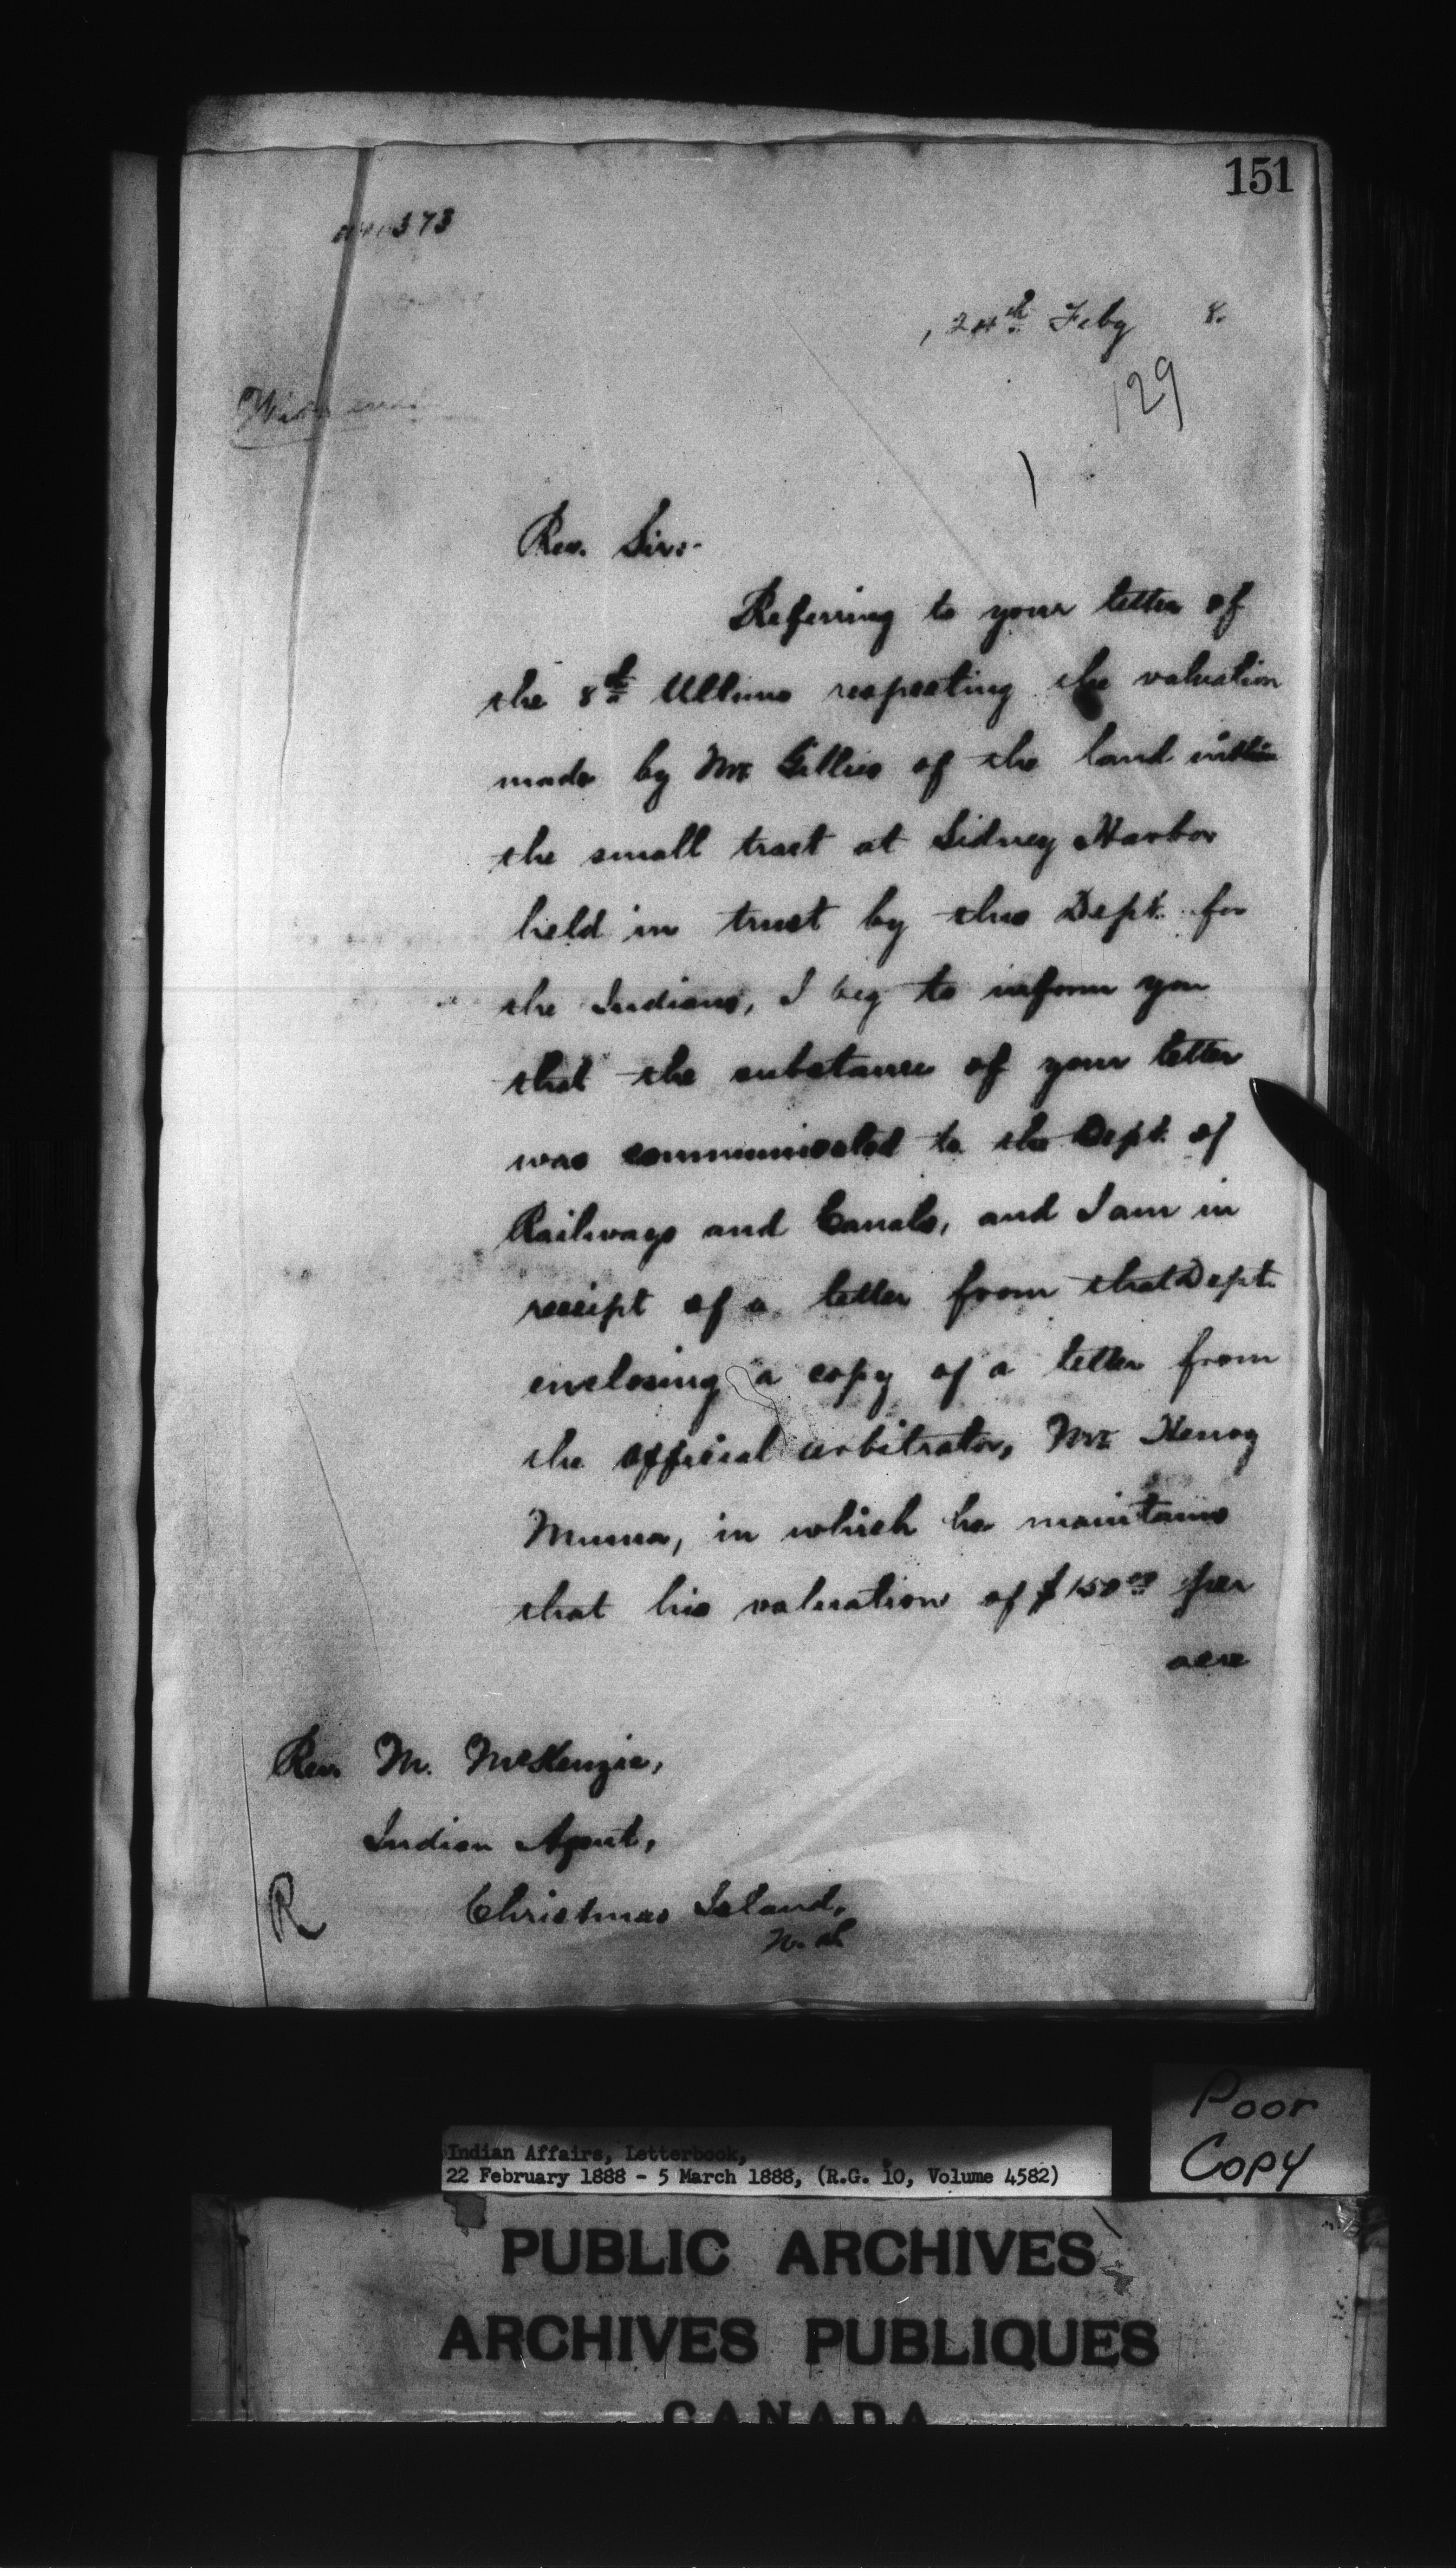 151
373
, 24th Feby 8.
129
Rev. Sir:-
Referring to your letter of
the 8th Ultimo respecting the valuation
made by Mr Gillies of the land within
the small tract at Sidney Harbor
held in trust by this Dept. for
the Indians, I beg to inform you
that the substance of your letter
was communicated to the Dept. of
Railways and Canals, and I am in
receipt of a letter from that Dept.
enclosing a copy of a letter from
the official arbitrator, Mr Henry
in which he maintains
that his valuation of $150.00 per
acre
Rev. M. McKenzie,
Indian Agent,
R
Christmas Island,
N.S.
Poor
Copy
Indian Affairs, Letterbook,
22 February 1888 - 5 March 1888, (R.G. 10, Volume 4582)
PUBLIC ARCHIVES
ARCHIVES PUBLIQUES
CANADA